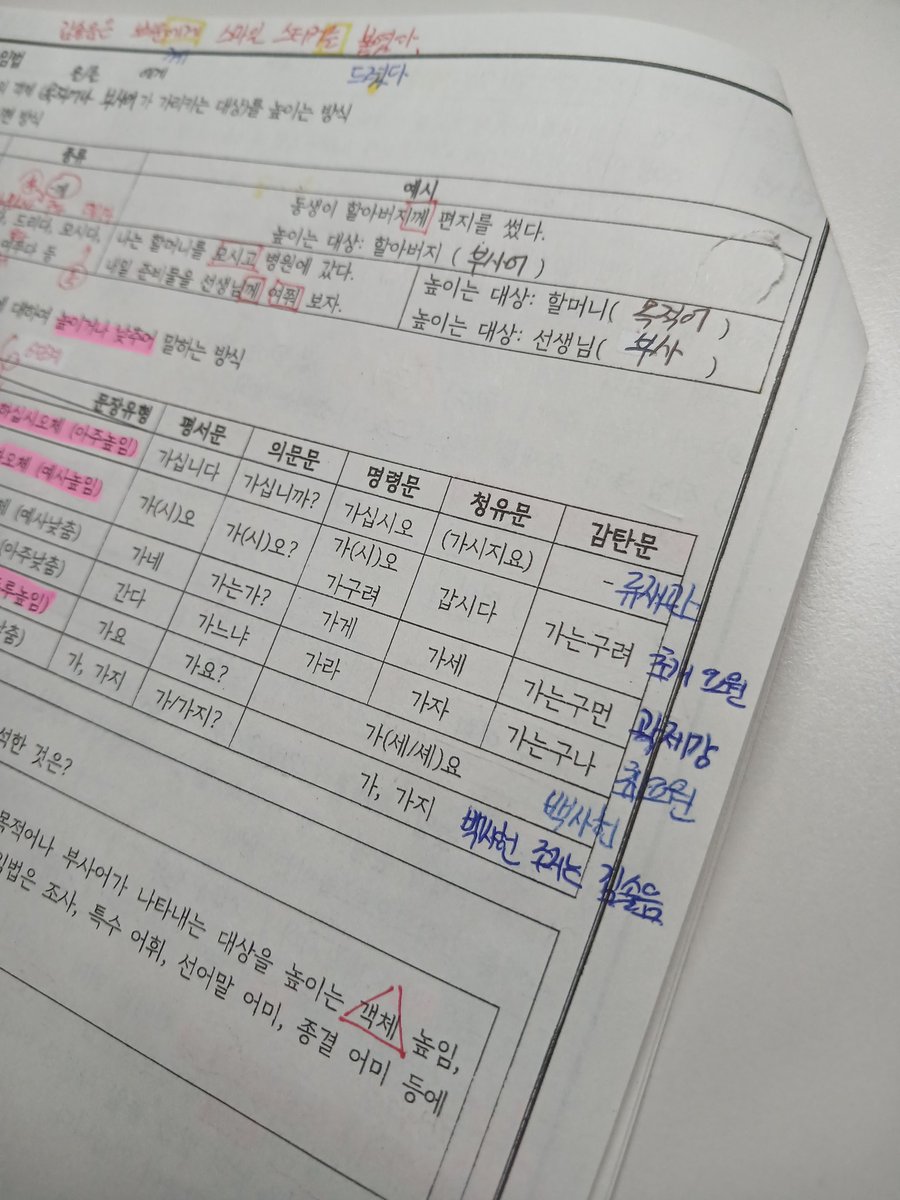 김솔음은 에게 스마일 스티커를 붙였다.
임법 은/는 에게 께 드렸다
의 객체 (목적어나 부사어가 가리키는 대상)를 높이는 방식
현 방식
종류 예시
께 동생이 할아버지께 편지를 썼다.
높이는 대상: 할아버지 ( 부사어 )
드리다, 모시다, 나는 할머니를 모시고 병원에 갔다. 높이는 대상: 할머니( 목적어 )
여쭈다 등 내일 준비물을 선생님께 여쭤 보자. 높이는 대상: 선생님( 부사 )
에 대하여 높이거나 낮추어 말하는 방식
문장유형 평서문 의문문 명령문 청유문 감탄문
하십시오체 (아주높임) 가십니다 가십니까? 가십시오 (가시지요) - 류재관
오체 (예사높임) 가(시)오 가(시)오? 가(시)오 갑시다 가는구려
가구려
체 (예사낮춤) 가네 가는가? 가게 가세 가는구먼
(아주낮춤) 간다 가느냐 가라 가자 가는구나
두루높임) 가요 가요? 가(세/셰)요 백사헌
낮춤) 가, 가지 가/가지? 가, 가지 백사헌 김솔음
석한 것은?
목적어나 부사어가 나타내는 대상을 높이는 객체 높임,
임법은 조사, 특수 어휘, 선어말 어미, 종결 어미 등에